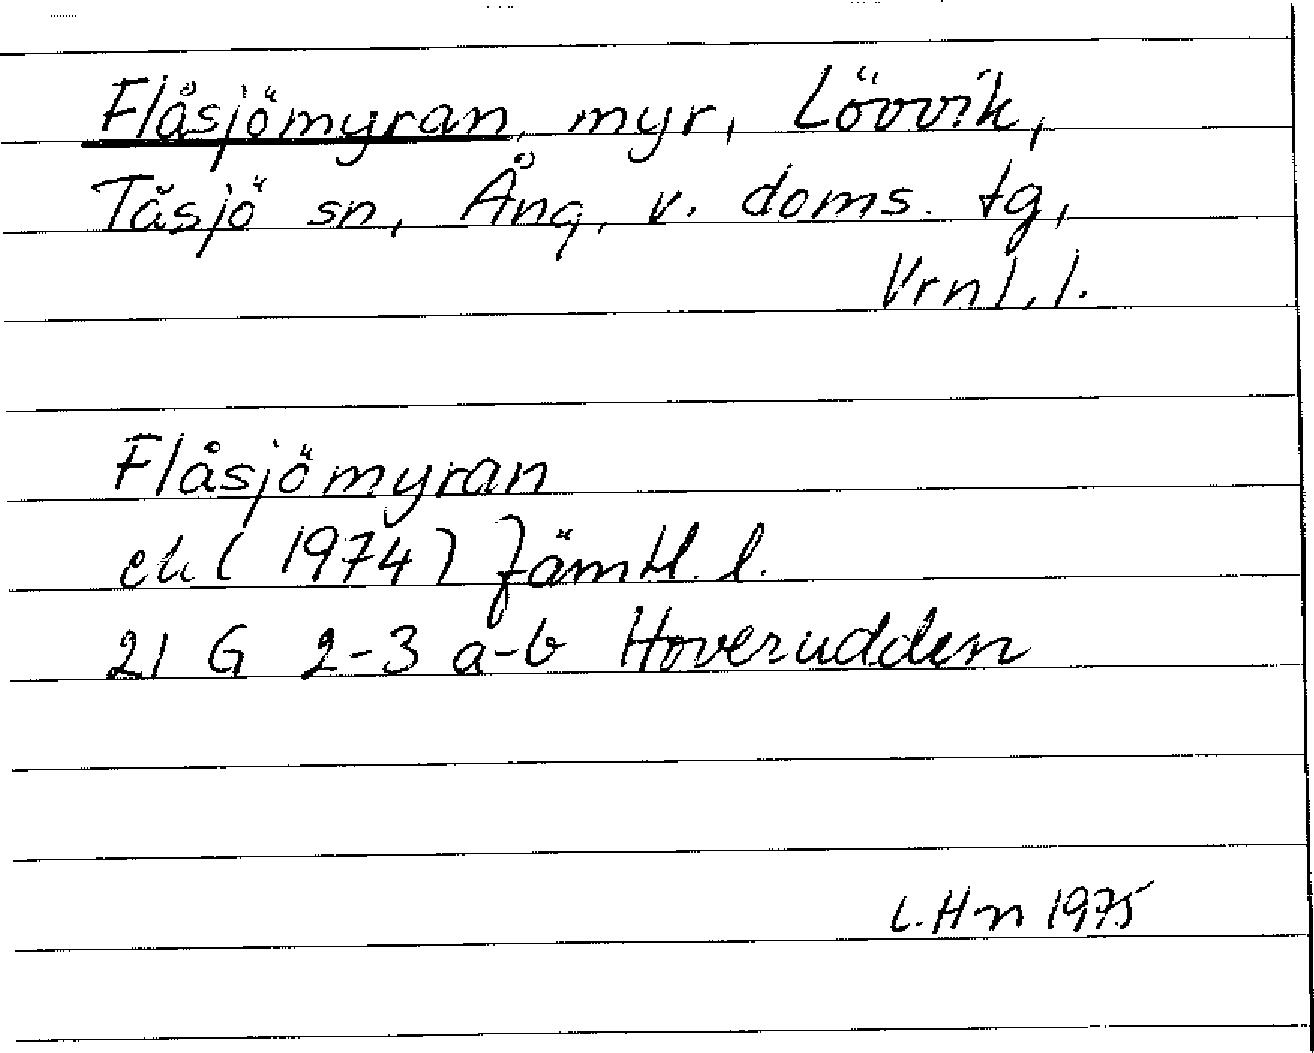 Flåsjömyran, myr, Lövvik,
Tåsjö sn, Ång, v. doms. tg,
Vrnl. l.
Flåsjömyran
ek (1974) Jämtl. l.
21 G 2-3 a-b Hoverudden
L. Hn 1975